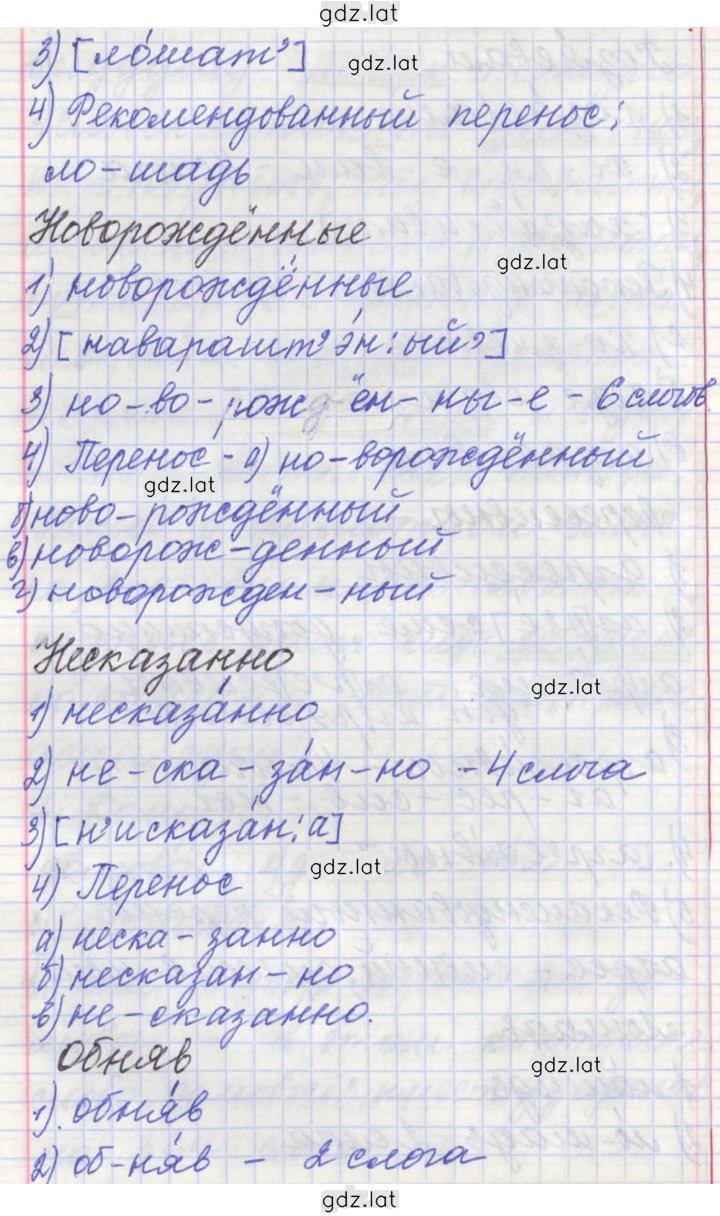 gdz.lat
3) [ло́шат']
gdz.lat
4) Рекомендованный перенос:
ло-шадь
Новорождённые
gdz.lat
1) новорождённые
2) [навараш т'э́н:ый']
3) но-во-рожд-ён-ны-е - 6 слогов
4) Перенос - а) но-ворождённый
gdz.lat
б) ново-рождённый
в) новорож-денный
г) новорожден-ный
Несказанно
gdz.lat
1) несказа́нно
2) не-ска-за́н-но - 4 слога
3) [н'исказа́н:а]
gdz.lat
4) Перенос
а) неска-занно
б) несказан-но
в) не-сказанно.
Обняв
gdz.lat
1). обня́в
2) об-ня́в - 2 слога
gdz.lat